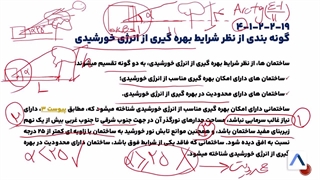 ۴-۱-۲-۲-۱۹
گونه بندی از نظر شرایط بهره گیری از انرژی خورشیدی
ساختمان ها، از نظر شرایط بهره گیری از انرژی خورشیدی، به دو گونه تقسیم میشوند:
✓ ساختمان های دارای امکان بهره گیری مناسب از انرژی خورشیدی؛
✓ ساختمان های دارای محدودیت در بهره گیری از انرژی خورشیدی.
ساختمانی دارای امکان بهره گیری مناسب از انرژی خورشیدی شناخته میشود که، مطابق پیوست ۳، دارای
نیاز غالب سرمایی نباشد، مساحت جدارهای نورگذر آن در جهت جنوب شرقی تا جنوب غربی بیش از یک نهم
زیربنای مفید ساختمان باشد، و همچنین موانع تابش نور خورشید به ساختمان با زاویه ای کمتر از ۲۵ درجه
نسبت به افق دیده شود. ساختمانی که فاقد یکی از شرایط فوق باشد، ساختمان دارای محدودیت در بهره
گیری از انرژی خورشیدی شناخته میشود.
α
L
α
H
۱
۲
۳
α < ۲۵ ✓
α > ۲۵